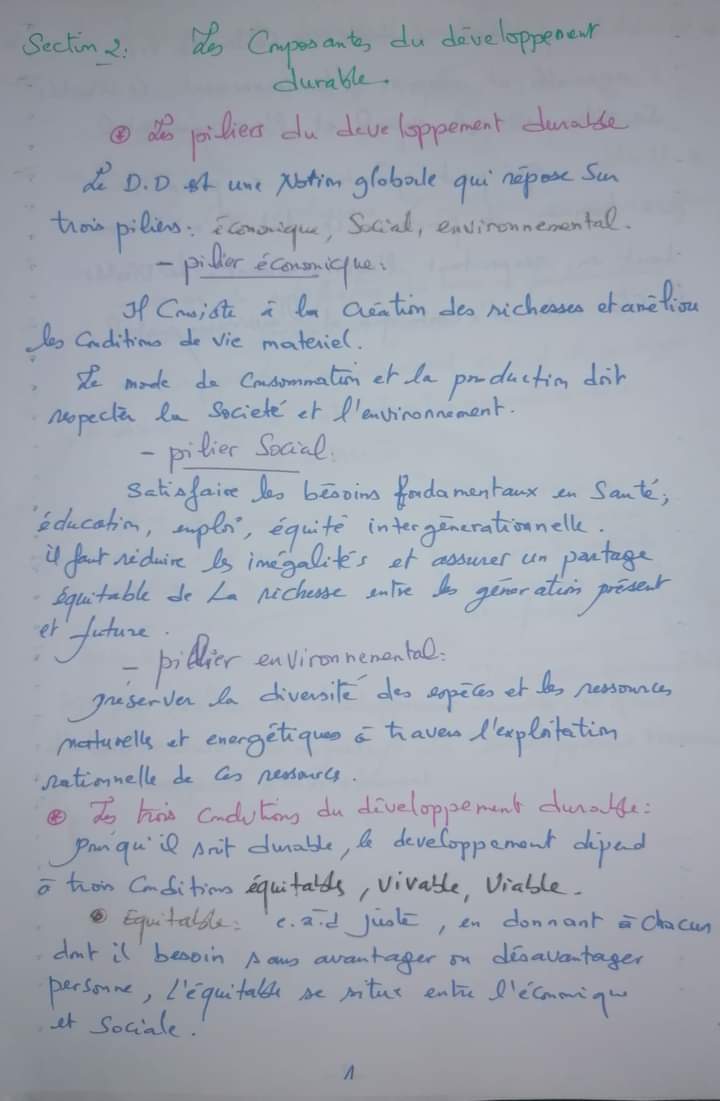 Section 2: Les Composantes du développement
durable.
Les piliers du developpement durable
Le D.D est une Notion globale qui répose Sur
trois piliers: économique, Social, environnemental.
- pilier économique:
Il Consiste à la Création des richesses et améliorer
les Conditions de vie materiel.
Le mode de Consommation et la production doit
respecter la Societé et l'environnement.
- pilier Social.
Satisfaire les bésoins fondamentaux en Santé,
éducation, emploi, équité intergénerationnelle.
il faut réduire les inégalités et assurer un partage
équitable de La richesse entre les géneration présent
et future.
- pillier environnemental:
préserver la diversité des espèces et les ressources
naturelles et energétiques à travers l'exploitation
rationnelle de ces ressources.
Les trois Conditions du développement durable:
pour qu'il soit durable, le developpement dépend
à trois Conditions équitables, Vivable, Viable.
Equitable: c.à.d juste, en donnant à chacun
dont il besoin sans avantager ou désavantager
personne, L'équitable se situe entre l'économique
et Sociale.
1